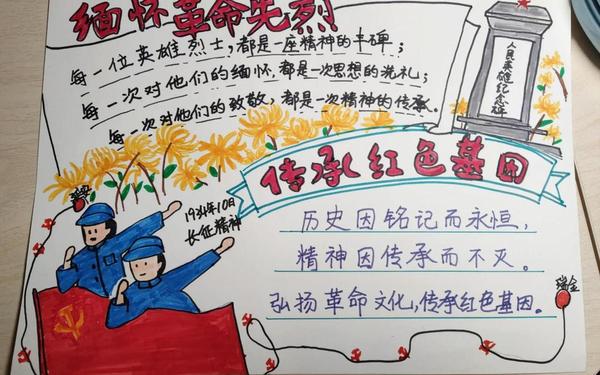 缅怀革命先烈
每一位英雄烈士，都是一座精神的丰碑；
每一次对他们的缅怀，都是一次思想的洗礼；
每一次对他们的致敬，都是一次精神的传承。
人民英雄纪念碑
传承红色基因
1934年10月
长征精神
历史因铭记而永恒，
精神因传承而不灭。
弘扬革命文化，传承红色基因。
瑞金